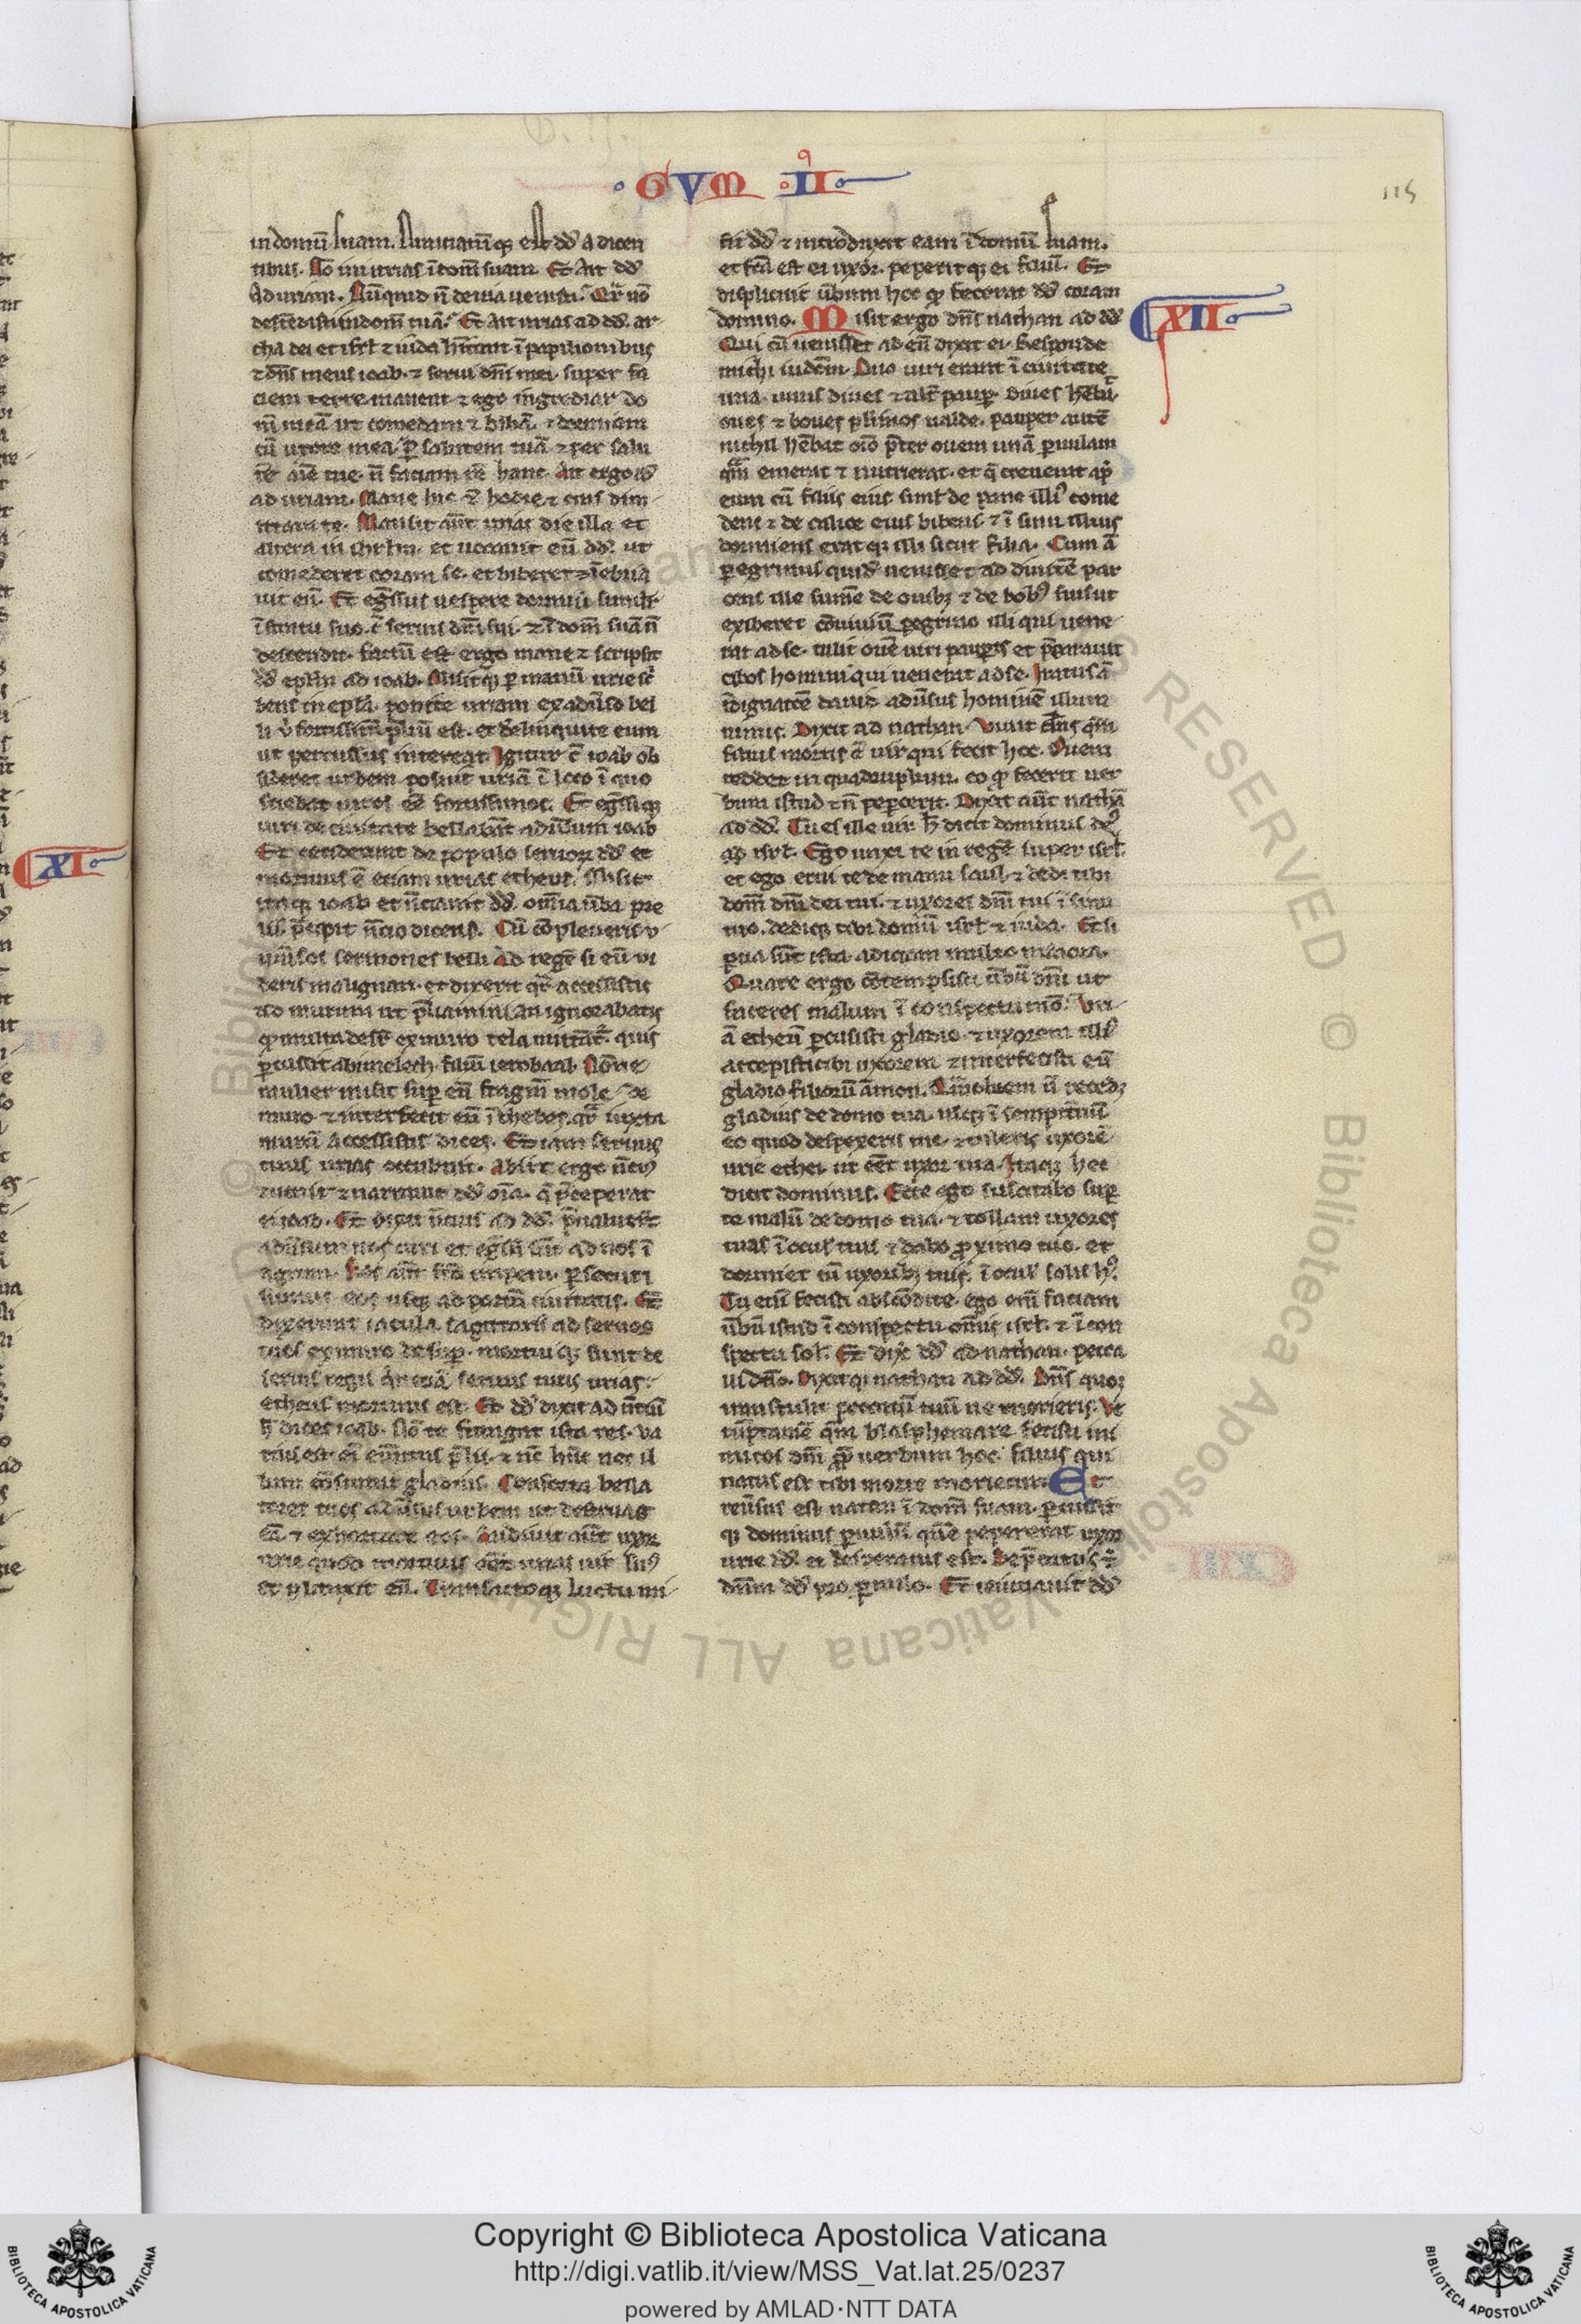 GVM II
115
in domū suam. Nunciatūq; est dđ a dicen
tibus. Nō iuit urias ī domū suam. Et ait dđ
ad uriam. Nūquid n̄ de uia uenisti. Qr̄ nō
descēdisti in domū tuā. Et ait urias ad dđ. ar
cha dei et isrł ⁊ iuda hītant ī papilionibus
⁊ dn̄s meus ioab. ⁊ serui dn̄i mei. super fa
ciem terre manent. ⁊ ego ingrediar do
mū meā ut comedam ⁊ bibā. ⁊ dormiam
cū uxore mea. ꝑ salutem tuā ⁊ per salu
tē aīe tue. n̄ faciam rē hanc. Ait ergo dđ
ad uriam. Mane hic ⁊ hodie ⁊ cras dim
ittam te. Mansit aūt urias die illa et
altera in ihrłm. et uocauit eū dđ. ut
comederet coram se. et biberet ⁊ īebria
uit eū. Et eḡssus uespere dormiuit
ī stratu suo. c̄ seruis dn̄i sui. ⁊ ī domū suā n̄
descendit. factū est ergo mane ⁊ scripsit
dđ eplām ad ioab. Misitq; ꝑ manū urie sc̄
bens in epła. ponite uriam ex aduiso bel
li u̇ fortissimū p̄liū est. et derelinquite eum
ut percussus intereat. Igitur c̄ ioab ob
sideret urbem posuit uriā ī loco ī quo
sciebat uiros eē fortissimos. Et eḡssiq;
uiri de ciuitate bellabāt aduīsum ioab
Et ceciderunt de populo seruoꝝ dđ et
mortuus ē etiam urias etheus. Misit
itaq; ioab et nūciauit dđ. omīa ūba pre
lii. p̄cepit nūcio dicens. Cū cōpleueris v
niūsos sermones belli ad regē si eū vi
deris indignari. et dixerit qr̄ accessistis
ad murum ut p̄liaminī. an ignorabatis
ꝙ multa desup ex muro tela mittāt. quis
ꝑcussit abimelech filiū ierobaal. Nōne
mulier misit suꝑ eū fragm̄ mole de
muro ⁊ interfecit eū ī thebes. qr̄ iuxta
murū accessistis dices. Etiam seruus
tuus urias occubuit. Abiit ergo nūcius
⁊ uenit ⁊ narrauit dđ oīa. q̄ p̄ceperat
ei ioab. Et dixit nūcius ad dđ. p̄ualuerūt
aduīsum nos uiri et eḡssi sūt ad nos ī
agrum. Nos aūt fc̄o impetu. ꝑsecuti
sumus eos usq; ad portā ciuitatis. Et
dixerunt iacula sagittarii ad seruos
tuos ex muro desuꝑ. mortuiq; sunt de
seruis regis. quī etiā seruus tuus urias.
etheus mortuus est. Et dđ dixit ad nūciū
h̄ dices ioab. Nō te frangat ista res. va
rius est eī euentus p̄lii. ⁊ nūc hūc nūc il
lum cōsumit gladius. Conforta bella
tores tuos aduīsus urbem ut destruas
eā ⁊ exhortare eos. Audiuit aūt uxor
urie quod mortuus eēt urias uir suus
et planxit eū. Transacto q; luctu mi
sit dđ ⁊ introduxit eam ī domū suam.
et fc̄a est ei uxor. peperitq; ei filiū. Et
displicuit ūbum hoc ꝙ fecerat dđ coram
domino. Misit ergo dn̄s nathan ad dđ
XII
Qui cū uenisset ad eū dixit ei. Responde
michi iudiciū. Duo uiri erant ī ciuitate
una. unus diues ⁊ alt̄ pauꝑ. Diues hēbat
oues ⁊ boues plīmos ualde. pauper autē
nichil hēbat oīo p̄ter ouem unā paruulam
quā emerat ⁊ nutrierat. et q̄ creuerat ap̄
eum cū filiis eius simul de pane illius come
dens ⁊ de calice eius bibens. ⁊ ī sinu illius
dormiens eratq; illi sicut filia. Cum aūt
ꝑegrinus quidā uenisset ad diuitē par
cens ille sumē de ouibꝫ ⁊ de bobꝫ suis ut
exiberet cōuiuiū ꝑegrino illi qui uene
rat ad se. tulit ouē uiri pauꝑis et p̄parauit
cibos homini qui uenerat ad se. Iratus aūt
īdignatōe dauid aduīsus hominē illum
nimis. Dixit ad nathan. Viuit dn̄s qm̄
filius mortis ē uir qui fecit hoc. Ouem
reddet in quadruplum. eo ꝙ fecerit uer
bum istud ⁊ n̄ peꝑcerit. Dixit aūt nathā
ad dđ. Tu es ille uir. h̄ dicit dominus deꝰ
isrł. Ego unxi te in regē super isrł.
et ego erui te de manu saul ⁊ dedi tibi
domū dn̄i tui. ⁊ uxores dn̄i tui ī sinu
tuo. dediq; tibi domū isrł ⁊ iuda. Et si
parua sūt ista adiciam multo maiora.
Quare ergo cōtempsisti ūbū dn̄i ut
faceres malum ī conspectu meo. Vri
ā etheū ꝑcussisti gladio. ⁊ uxorem illiꝰ
accepisti tibi uxorem ⁊ interfecisti eū
gladio filiorū āmon. Quāobrem n̄ recedꝫ
gladius de domo tua. usq; ī sempiternū
eo quod despexeris me. ⁊ tuleris uxorē
urie ethei. ut eēt uxor tua. Itaq; hec
dicit dominus. Ecce ego suscitabo suꝑ
te malū de domo tua. ⁊ tollam uxores
tuas ī oculis tuis ⁊ dabo ꝓximo tuo. et
dormiet cū uxoribꝫ tuis. ī oculis solis hꝰ.
Tu enī fecisti abscōdite. ego enī faciam
ūbū istud ī conspectu omīs isrł. ⁊ ī con
spectu solis. Et dixit dđ ad nathan. pecca
ui dn̄o. Dixitq; nathan ad dđ. Dn̄s quoq;
transtulit peccatū tuū ne morieris. Ve
rūptamē qm̄ blasphemare fecisti ini
micos dn̄i ꝓpter uerbum hoc. filius qui
natus est tibi morte morietur. Et
reūsus est natan ī domū suam. ꝑcussit
q; dominus paruulū quē pepererat uxor
urie dđ. et desperatus est. Dep̄catusq;
dn̄m dđ pro paruulo. Et ieiunauit dđ
XI
© Biblioteca Apostolica Vaticana ALL RIGHTS RESERVED © Biblioteca Apostolica Vaticana ALL RIGHTS RESERVED
Copyright © Biblioteca Apostolica Vaticana
http://digi.vatlib.it/view/MSS_Vat.lat.25/0237
powered by AMLAD·NTT DATA
BIBLIOTECA APOSTOLICA VATICANA
BIBLIOTECA APOSTOLICA VATICANA